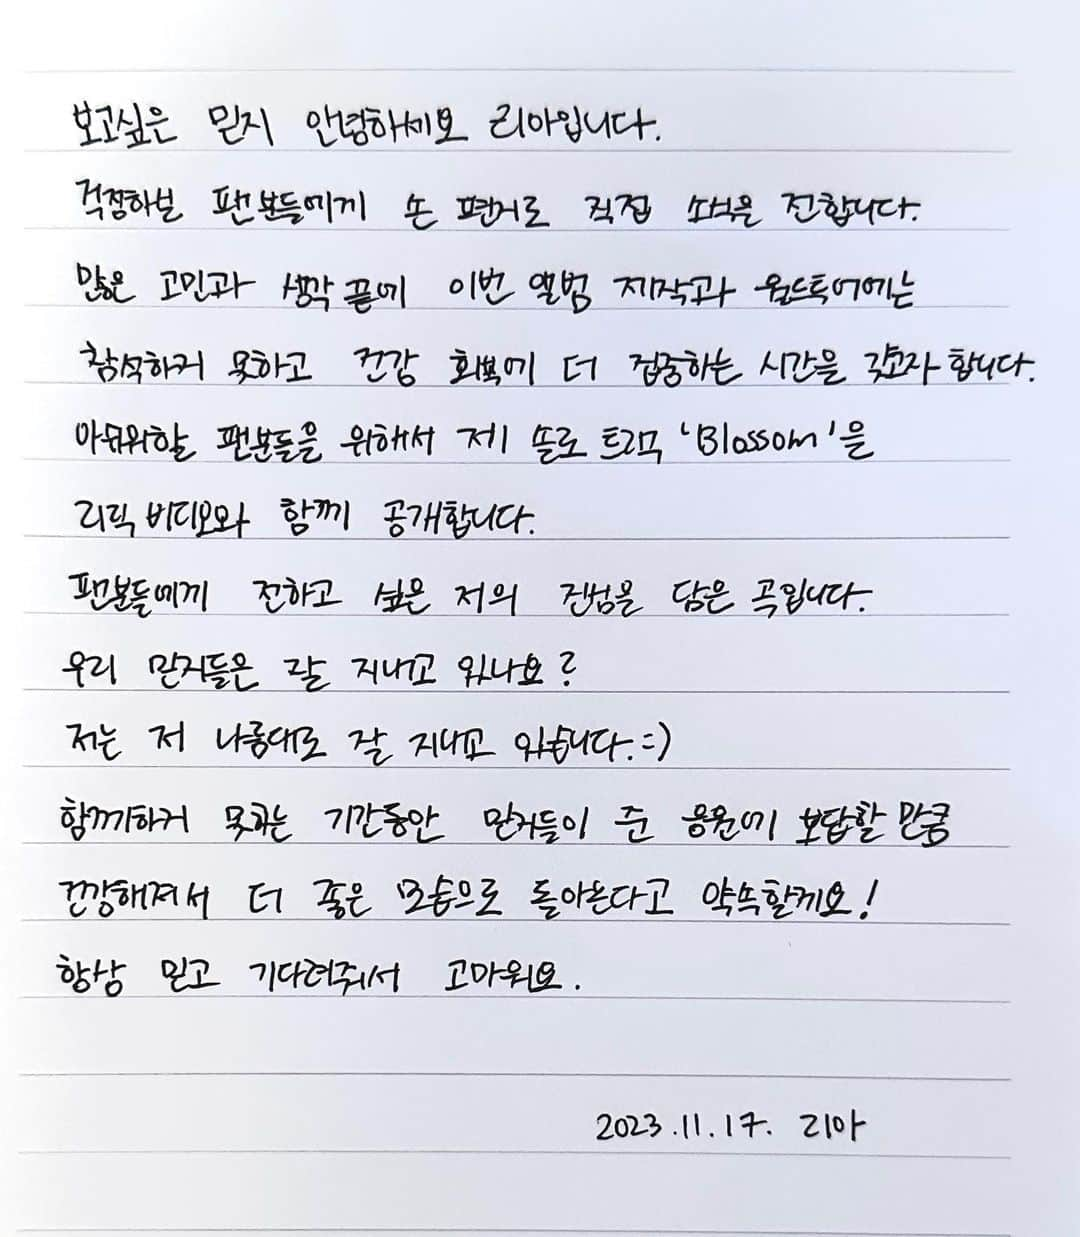 보고싶은 믿지 안녕하세요 리아입니다.
걱정하실 팬분들에게 손 편지로 직접 소식을 전합니다.
많은 고민과 생각 끝에 이번 앨범 제작과 월드투어에는
참석하지 못하고 건강 회복에 더 집중하는 시간을 갖고자 합니다.
아쉬워할 팬분들을 위해서 제 솔로 트랙 'Blossom'을
리릭 비디오와 함께 공개합니다.
팬분들에게 전하고 싶은 저의 진심을 담은 곡입니다.
우리 믿지들은 잘 지내고 있나요?
저는 저 나름대로 잘 지내고 있습니다.:)
함께하지 못하는 기간동안 믿지들이 준 응원에 보답할 만큼
건강해져서 더 좋은 모습으로 돌아온다고 약속할게요!
항상 믿고 기다려줘서 고마워요.
2023.11.17. 리아